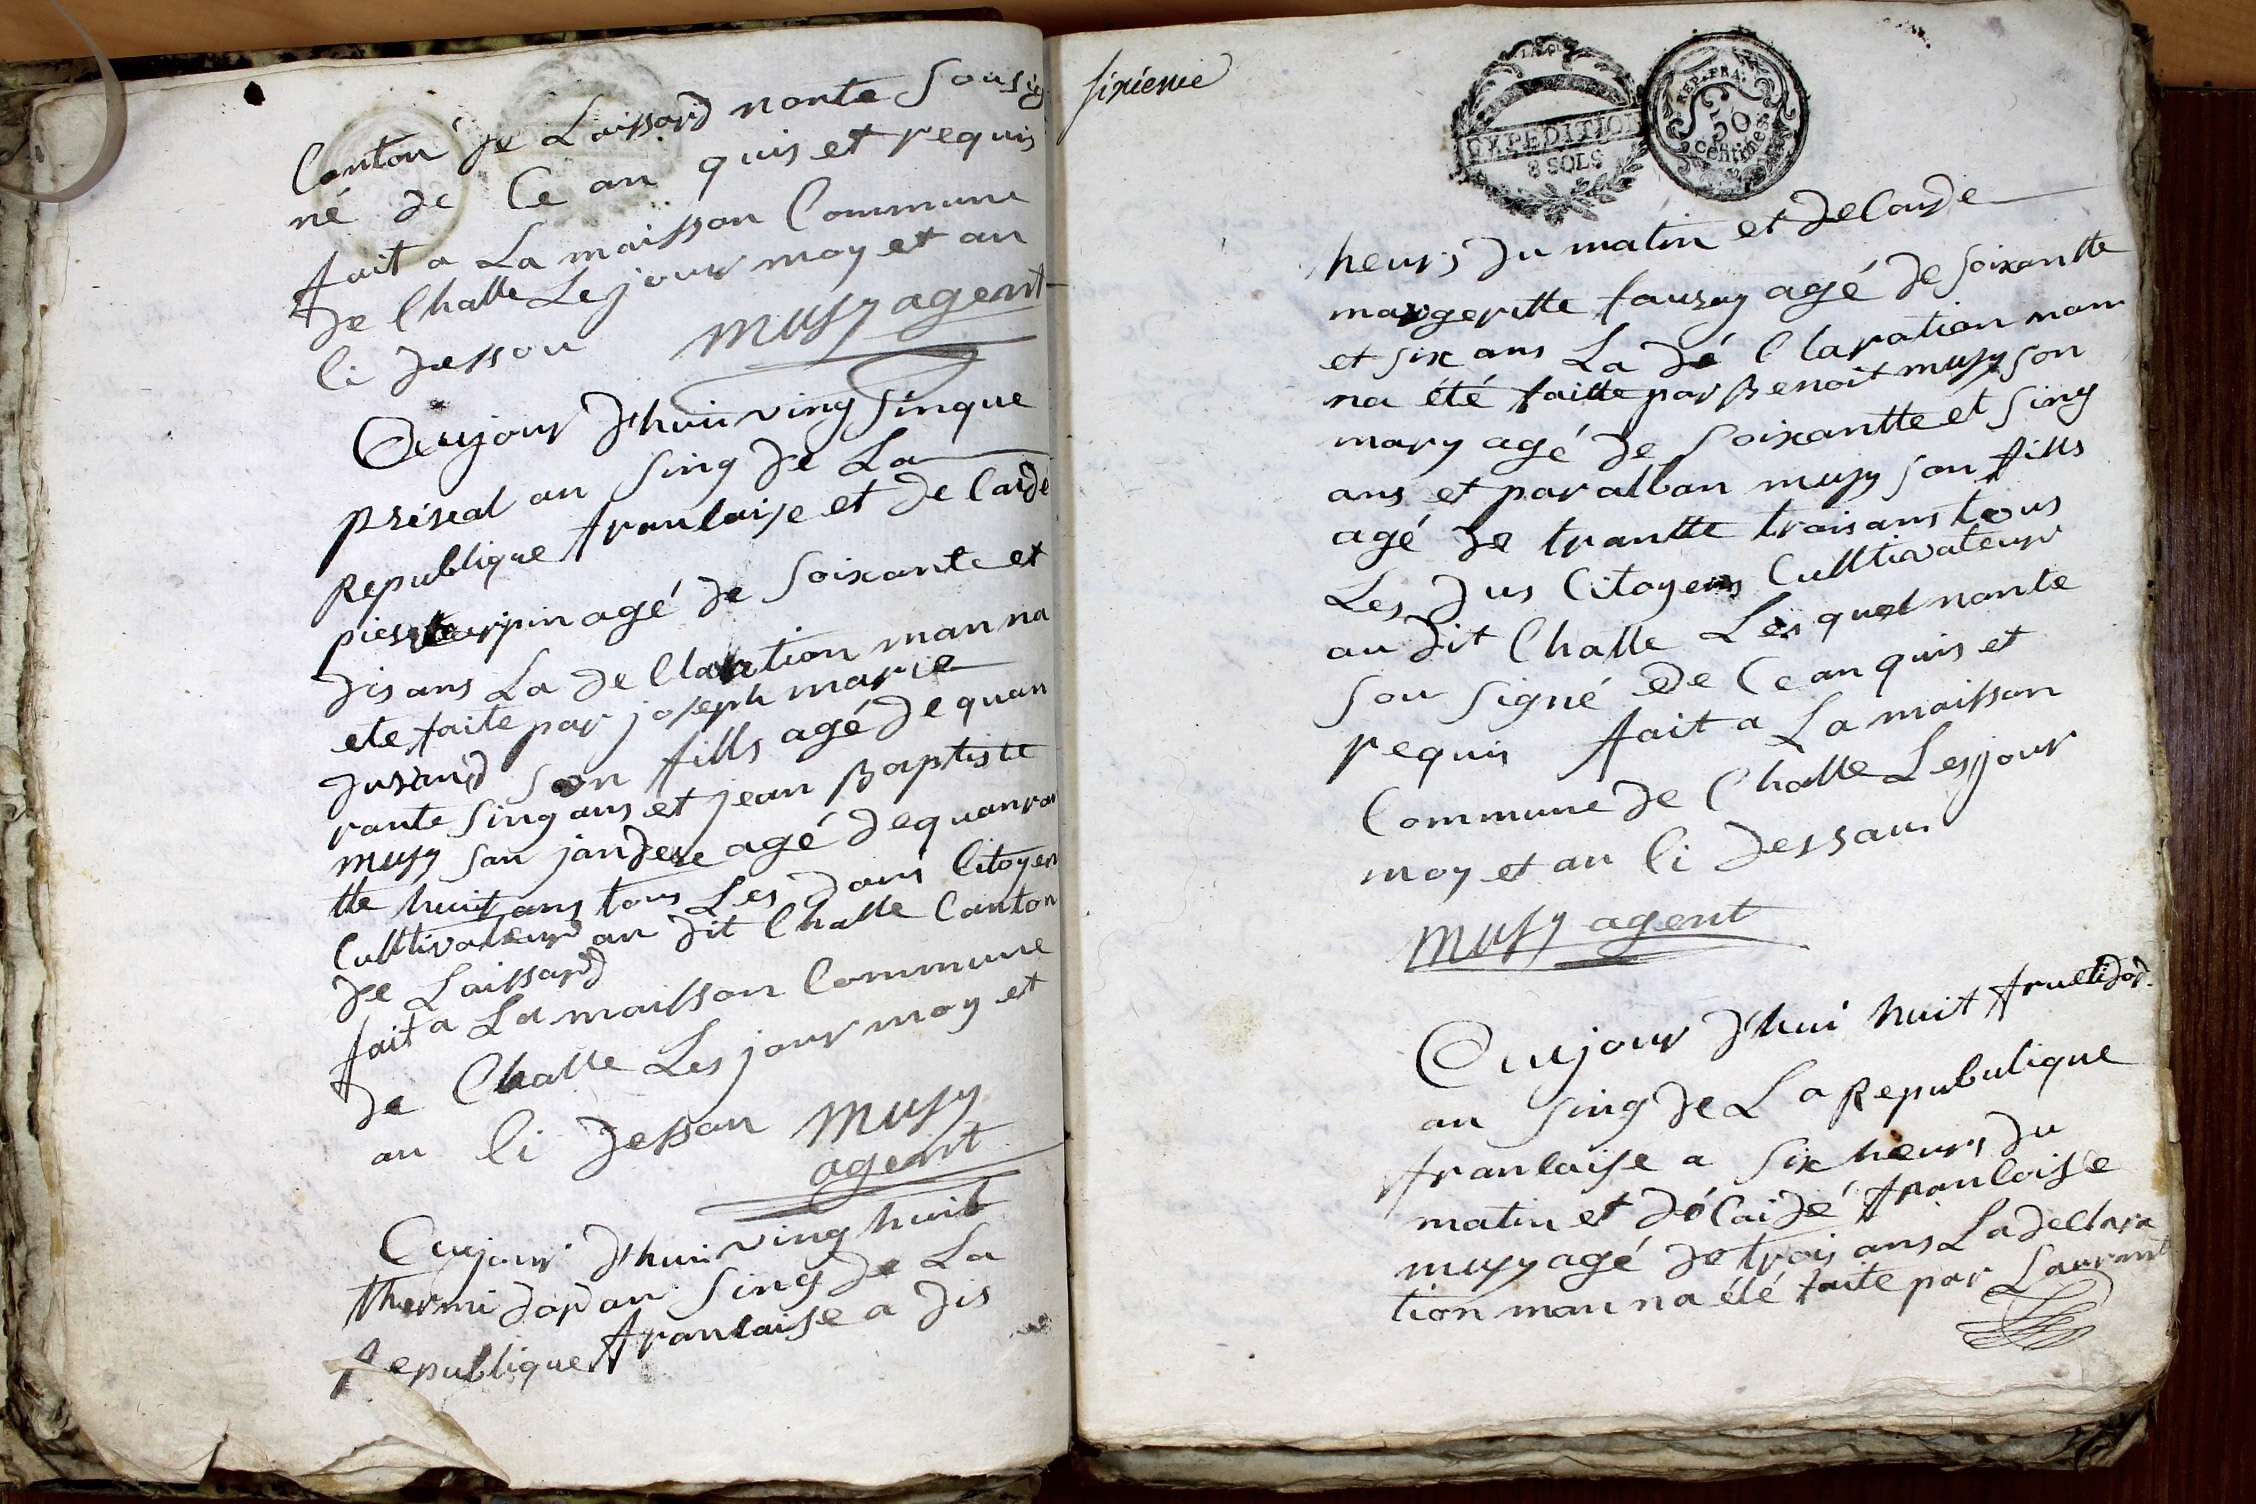 Canton de Laissard nonte sousig
né de Ce an quis et requis
fait a La maisson Commune
de Challe Le jour moy et an
Ci dessou musy agent
Aujour d'huii ving sinque
prereal an sing de La
Republique francaise et de Caidé
piere turpin agé de soixante et
dis ans La de Claration man na
ete faite par joseph marie
durand son fills agé de quan
rante sing ans et jean Baptiste
musy san jandere agé de quanran
tte huit ans tous Les dous Citoyen
Culltivateur an dit Challe Canton
de Laissard
fait a La maisson Commune
de Challe Les jour moy et
an Ci dessou musy
agent
Aujour d'hui ving huit
thermi dor an sing de La
Republique francaise a dis
sixieme
EXPEDITION
8 SOLS
REP. FRA.
50
Centimes
heurs du matin et de Caide
margeritte fauray agé de soixantte
et six ans La dé Claration nam
na été faitte par Benoit musy son
mary agé de soixantte et sing
ans et par alban musy son fills
agé de trantte trois ans tous
Les dus Citoyens Culltivateur
au dit Challe Les quel nonte
sou signé de Ce an quis et
requis fait a La maisson
Commune de Challe Les jour
moy et an Ci dessau
musy agent
Aujour d'hui huit fructidor
an sing de La Republique
francaise a six heurs du
matin et dé Caidé francoise
musy agé de trois ans La declara
tion man na été faite par Laurant